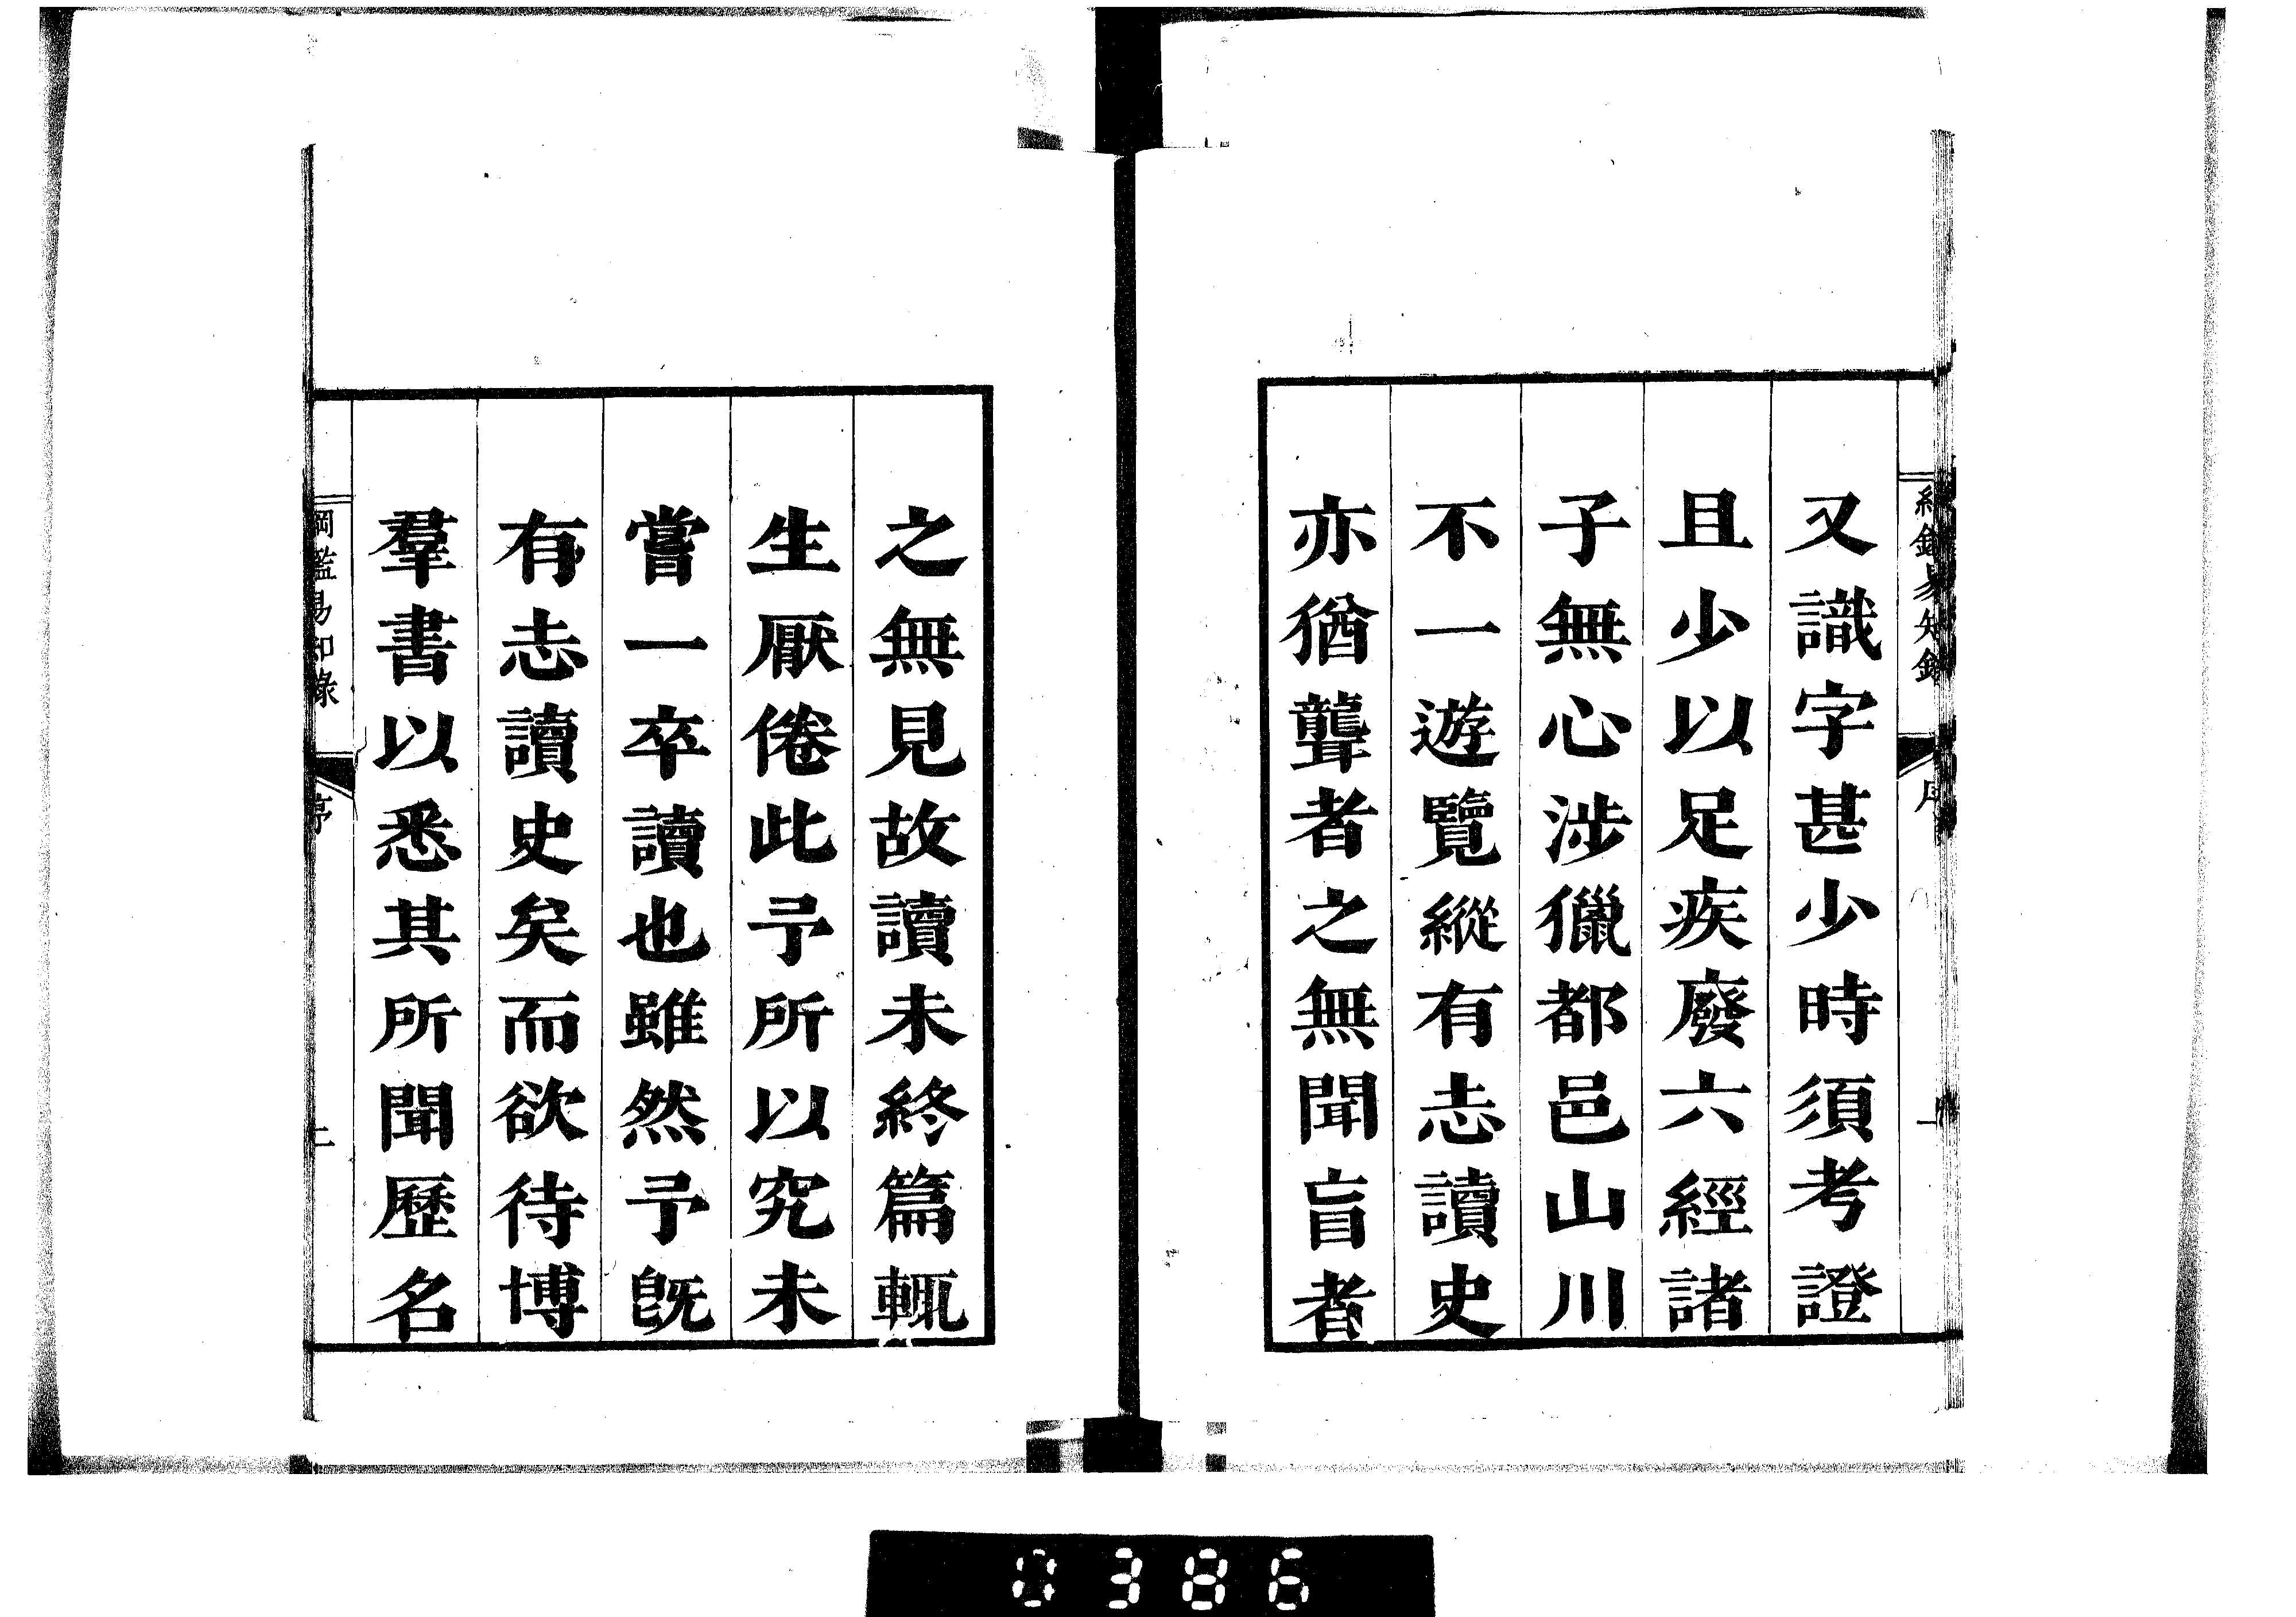 又識字甚少時須考證
且少以足疾廢六經諸
子無心涉獵都邑山川
不一遊覽縱有志讀史
亦猶聾者之無聞盲者
之無見故讀未終篇輒
生厭倦此予所以究未
嘗一卒讀也雖然予旣
有志讀史矣而欲待博
羣書以悉其所聞歷名
綱鑑易知錄
序
0386